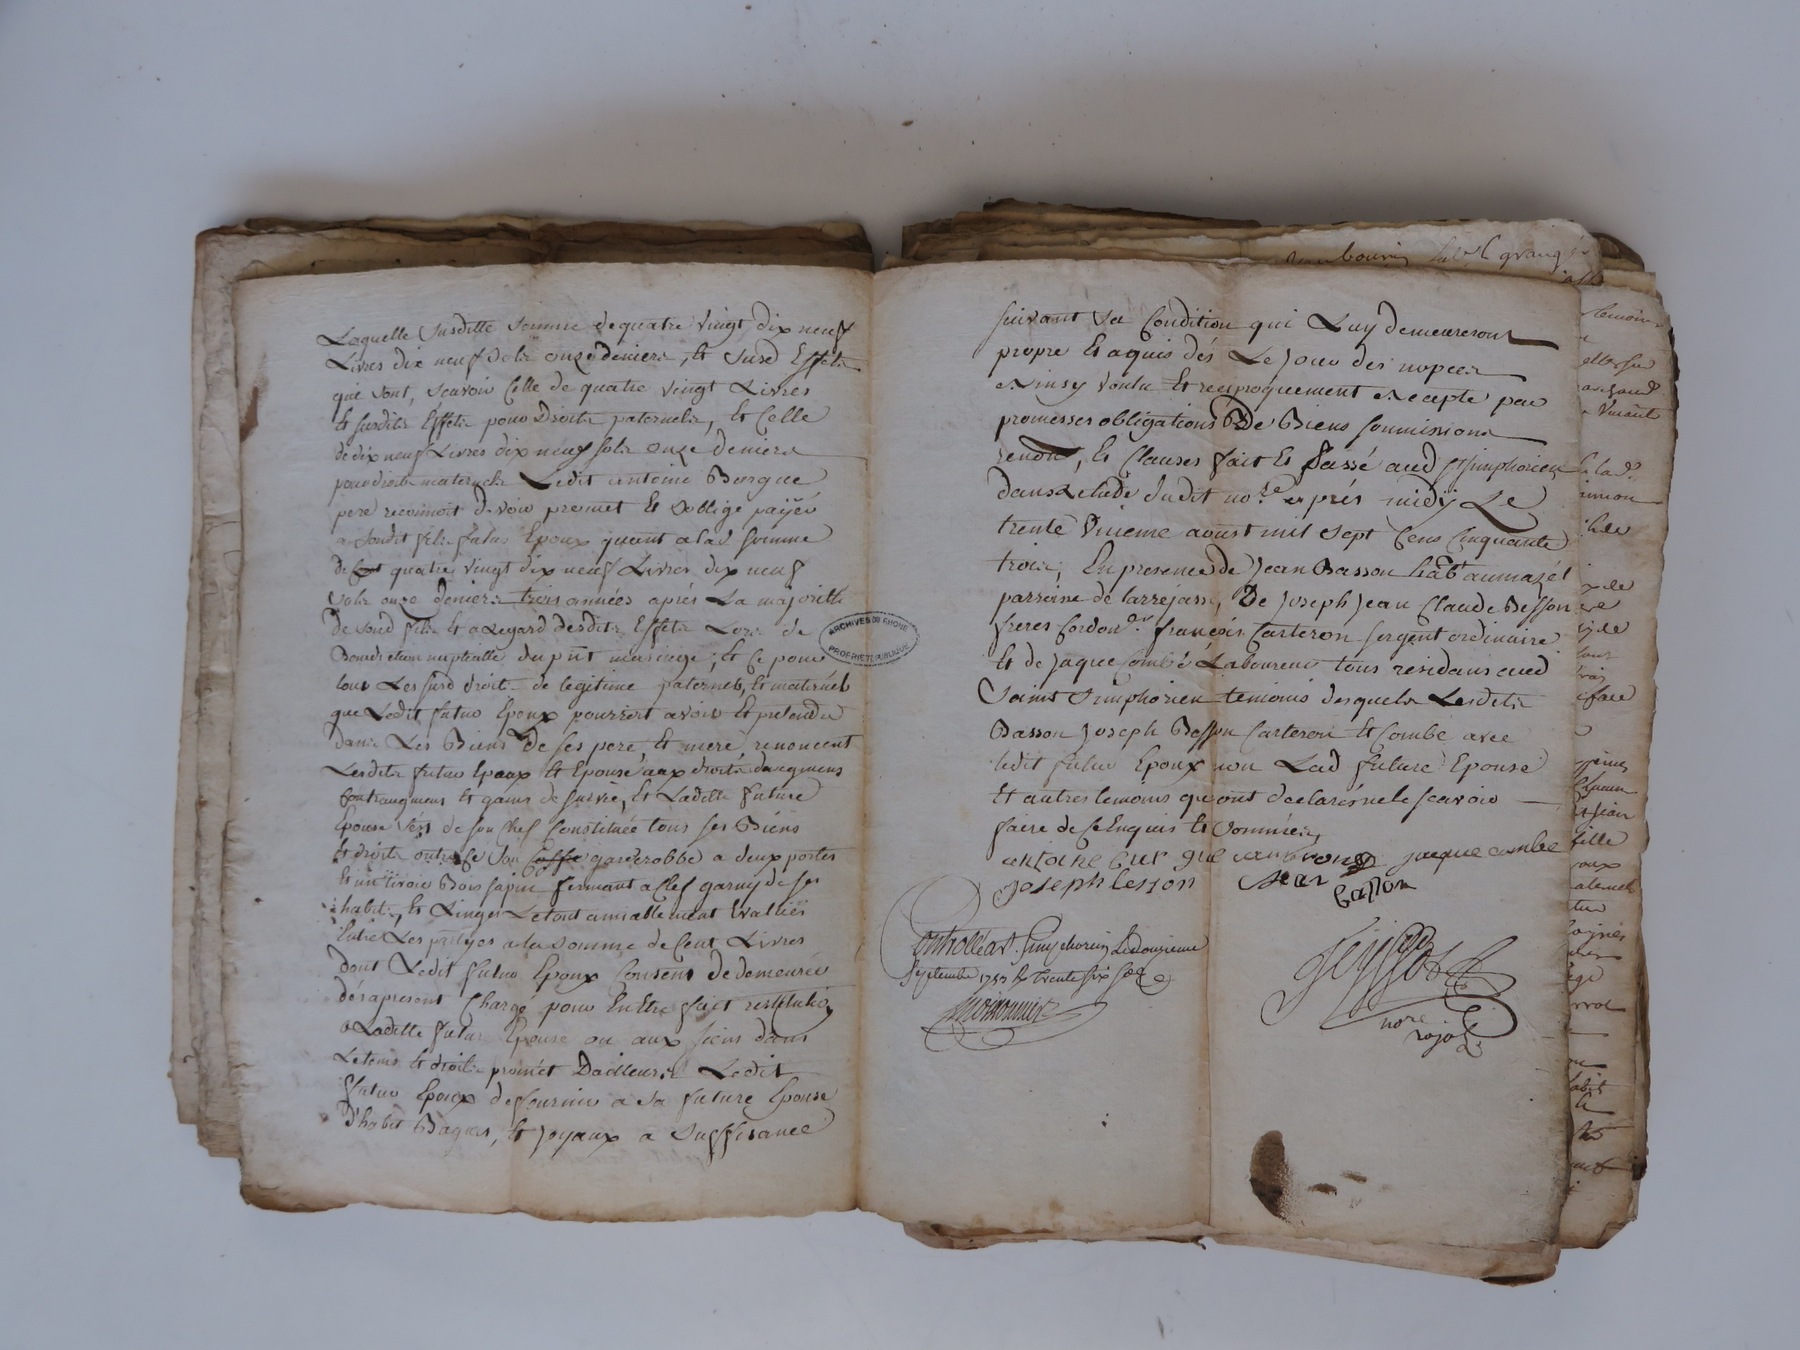 Laquelle susditte somme de quatre vingt dix neuf
Livres dix neuf sols onze deniers, et susd Effets
qui sont, scavoir Celle de quatre vingt Livres
et susdits Effets pour Droits paternels, et Celle
de dix neuf Livres dix neuf sols onze deniers
pour droits maternels Ledit antoine
pere reconnoit devoir promet et soblige payer
a sondit fils futur Epoux quant a lad somme
de quatre vingt dix neuf Livres dix neuf
sols onze deniers trois années aprés La majorité
de sond fils et a Legard desdits Effets Lors de
Benediction nuptialle du pnt mariage; et Ce pour
tous Les susd droits de legitime paternels, et maternels
que Ledit futur Epoux pourroit avoir et pretendre
dans Les Biens de ses pere et mere, renoncent
Lesdits futur Epoux et Epouse aux droits daugmens
Contraugment et gains de survie, et Laditte future
Epouse sést de son Chef Constituée tous ses Biens
et droits outre Ce son garderobbe a deux portes
et un tiroir Bois sapin fermant a Clef garny de ses
habits, et Linges Le tout amiablement Evallués
Entre Les parties a la somme de Cent Livres
dont Ledit futur Epoux Consent de demeurer
dés apresent Chargé pour En Etre fait restitution
a Laditte future Epouse ou aux siens dans
Le tems et droits promet Dailleurs Ledit
futur Epoux de fournir a sa future Epouse
d'habit Bagues, et joyaux a suffisance
suivant sa Condition qui Luy demeureront
propre et aquis dés Le jour des nopces
Ainsy voulu et reciproquement accepté par
promesses obligations De Biens soumissions
renon, et Clauses fait et passé aud st simphorien
dans Letude dudit no.re aprés midÿ Le
trente unieme aoust mil sept Cens Cinquante
trois, En presence de Jean Basson hab.t au mazél
parroisse de larrajasse, De Joseph Jean Claude Besson
freres Cordon.rs françois Carteron sergent ordinaire
et de jaque Combe Laboureur tous residans aud
Saint Simphorien temoins desquels Lesdits
Basson Joseph Besson Carteron et Combe avec
ledit futur Epoux non Lad future Epouse
et autres temoins qu'ont declarés ne le scavoir
faire de Ce Enquis et sommés
antoine jaque combe
Joseph besson Jean
basson
Controllé a St. simphorien Le douzieme
Septembre 1753 R trente six sols
nore
rojal
ARCHIVES DU RHONE
PROPRIETE PUBLIQUE